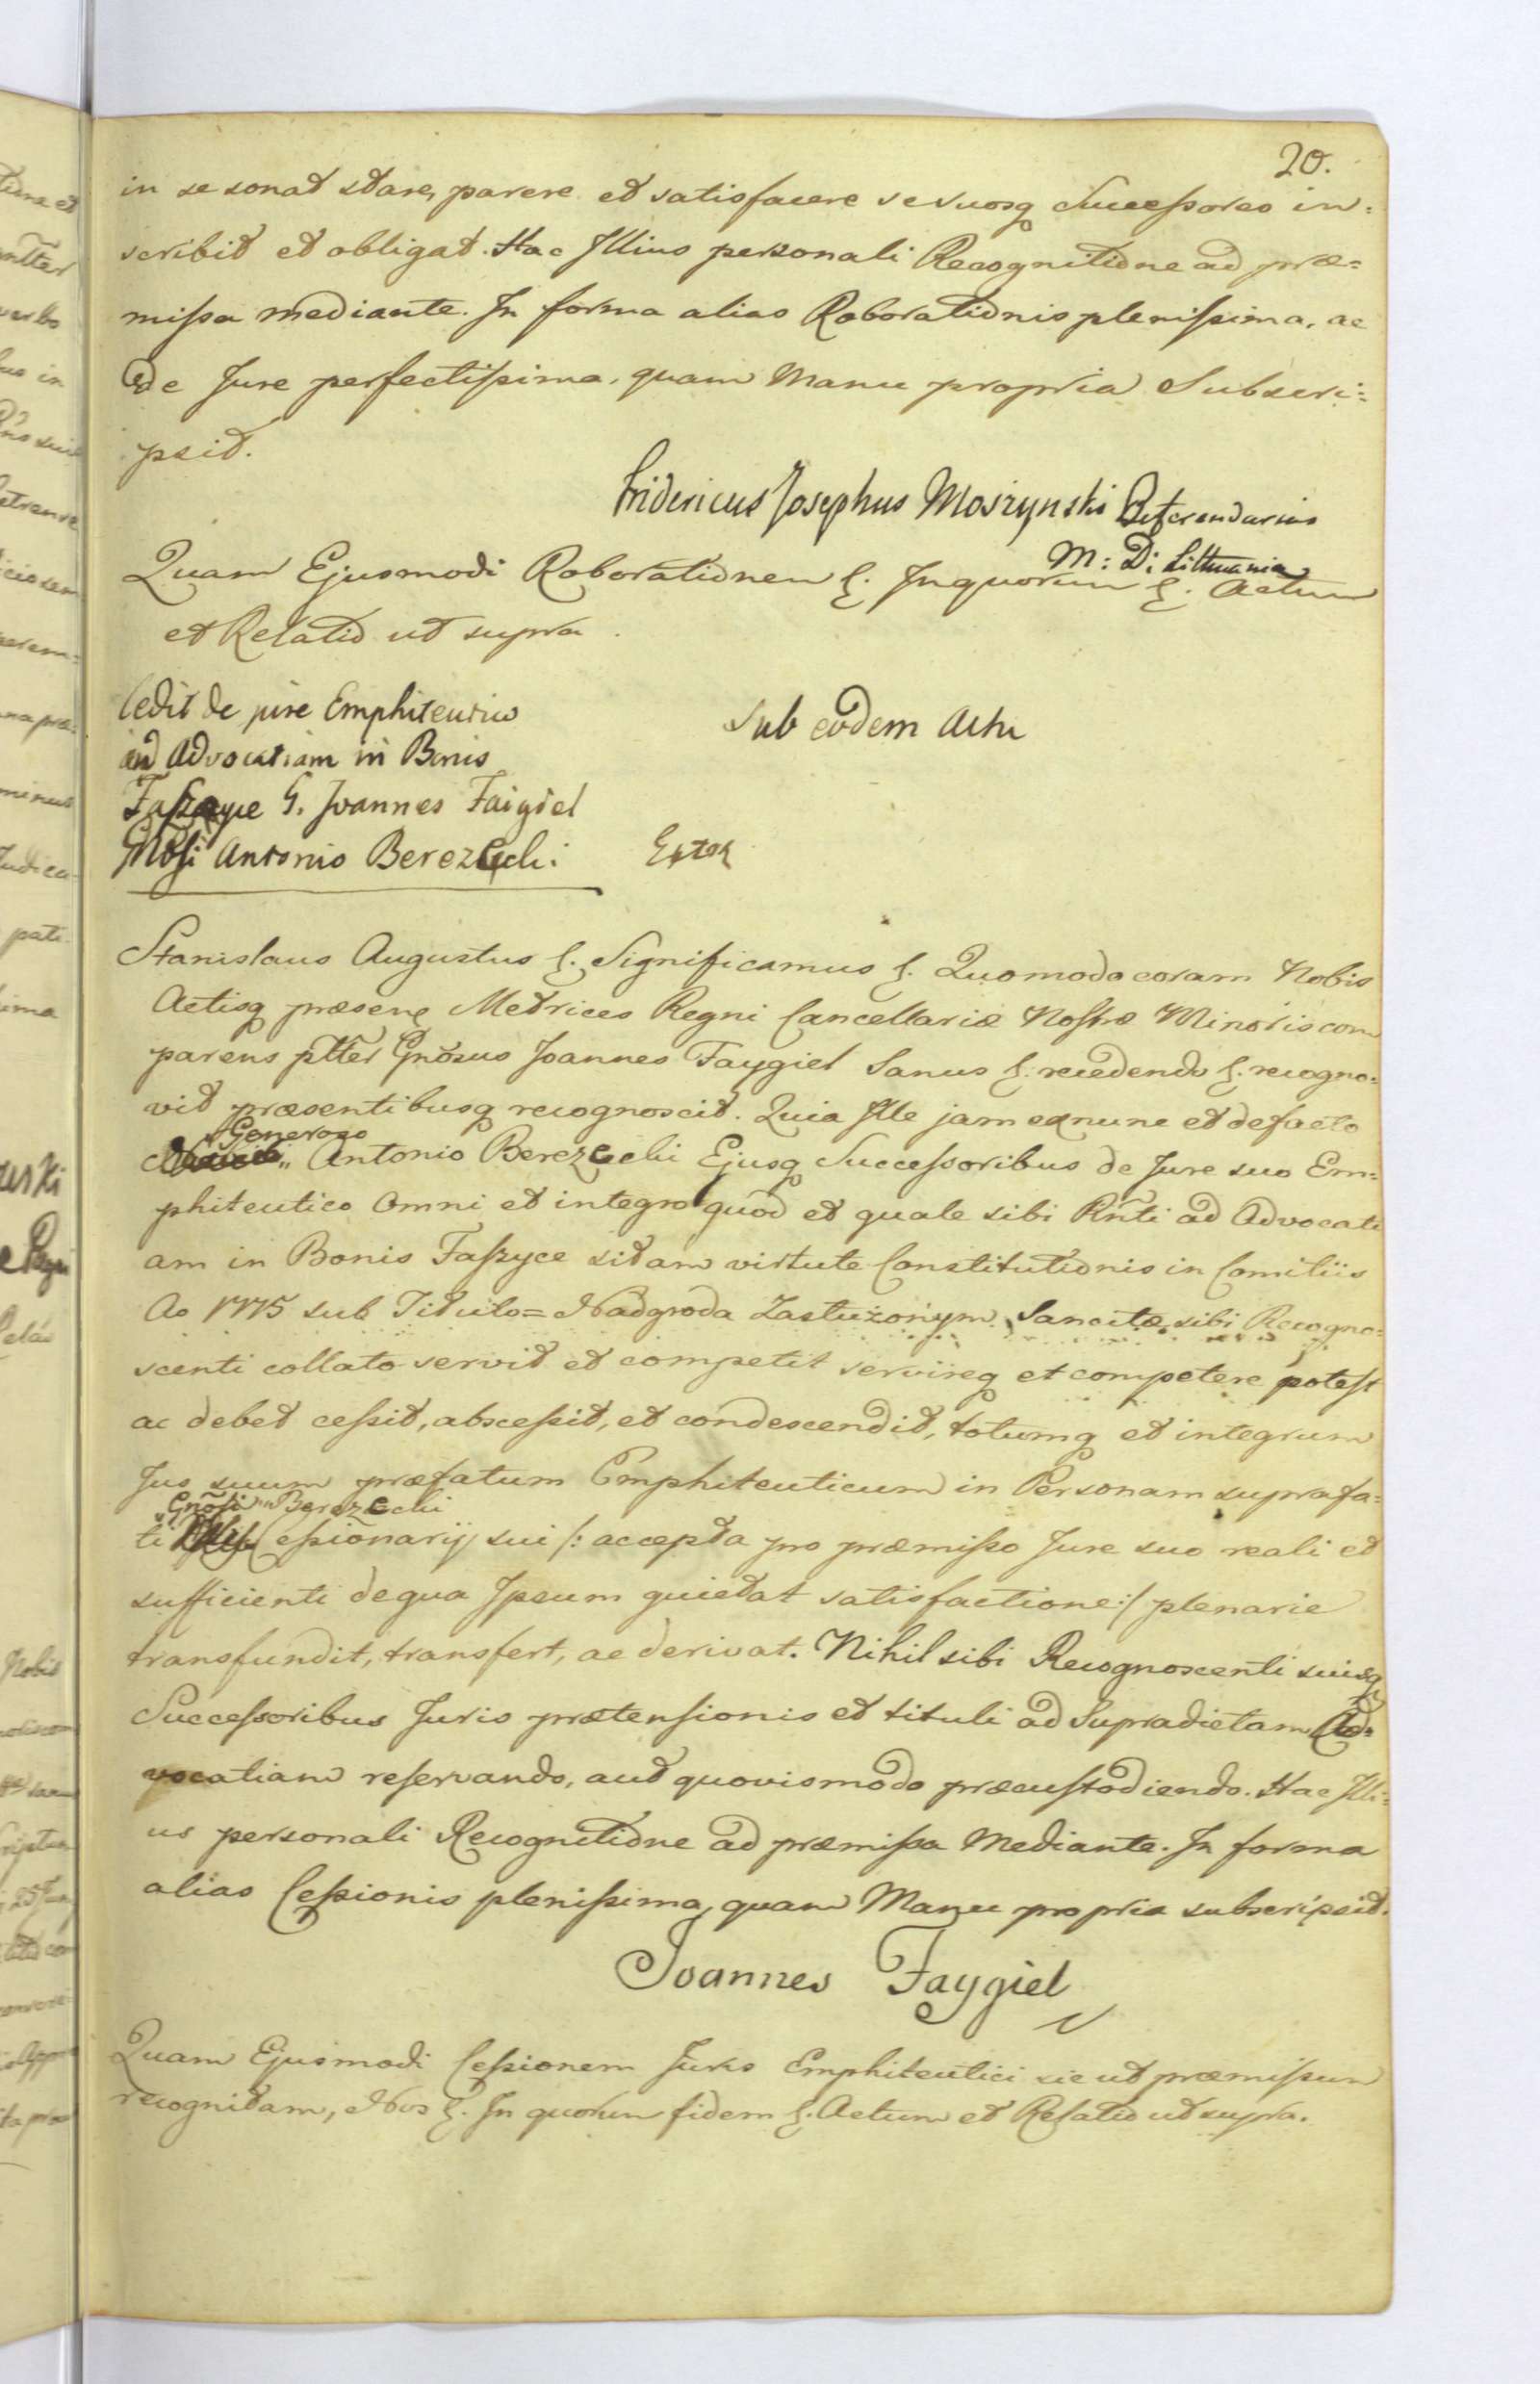 20.
in se sonat stare, parere et satisfacere se suosq Successores in=
scribit et obligat. Hac Illius personali Recognitione ad præ=
missa mediante. In forma alias Roborationis plenissima, ac
de Jure perfectissima, quam Manu propria Subscri=
psit.
Fridericus Josephus Moszynski Referendarius
M: D: Lithuaniæ
Quam Ejusmodi Roborationem &. In quorum &. Actum
et Relatio ut supra.
Cedit de jure Emphiteutico
ad Advocatiam in Bonis
Faszyce G. Joannes Faigiel
Gnosi Antonio Berezecki:
Sub eodem Actu
Extra
Stanislaus Augustus &. Significamus &. Quomodo coram Nobis
Actisq præsent Metrices Regni Cancellariæ Nostræ Minoris com
parens pltter Gnosus Joannes Faygiel Sanus &. recedendo &. recogno=
vit præsentibusq recognoscit. Quia Ille jam exnunc et defacto
Generoso
Antonio Berezecki Ejusq Successoribus de Jure suo Em=
phiteutico omni et integro quod et quale sibi Rnti ad Advocati
am in Bonis Faszyce sitam virtute Constitutionis in Comitiis
Ao 1775 sub Titulo= Nadgroda Zasłużonym Sancitæ sibi Recogno=
scenti collato servit et competit servireq et competere potest
ac debet cessit, abscessit, et condescendit, totumq et integrum
Jus suum præfatum Emphiteuticum in Personam suprafa=
Gnosi Berezecki
ti Cessionarij sui /: accepta pro præmisso Jure suo reali et
sufficienti dequa Ipsum quietat satisfactione :/ plenarie
transfundit, transfert, ac derivat. Nihil sibi Recognoscenti suisq
Successoribus Juris prætensionis et tituli ad Supradictam Ad=
vocatiam reservando, aut quovismodo præcustodiendo. Hac Illi=
us personali Recognitione ad præmissa Mediante. In forma
alias Cessionis plenissima, quam Manu propria subscripsit.
Joannes Faygiel
Quam Ejusmodi Cessionem Juris Emphiteutici sic ut præmissum
recognitam, Nos &. In quorum fidem &. Actum et Relatio ut supra.